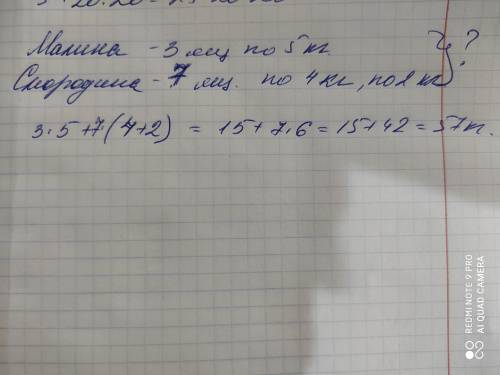 Малина - 3 ящ по 5 кг. } ?
Смородина - 7 ящ. по 4 кг, по 2 кг
3·5+7(4+2) = 15+7·6=15+42=57к.
REDMI NOTE 9 PRO
AI QUAD CAMERA